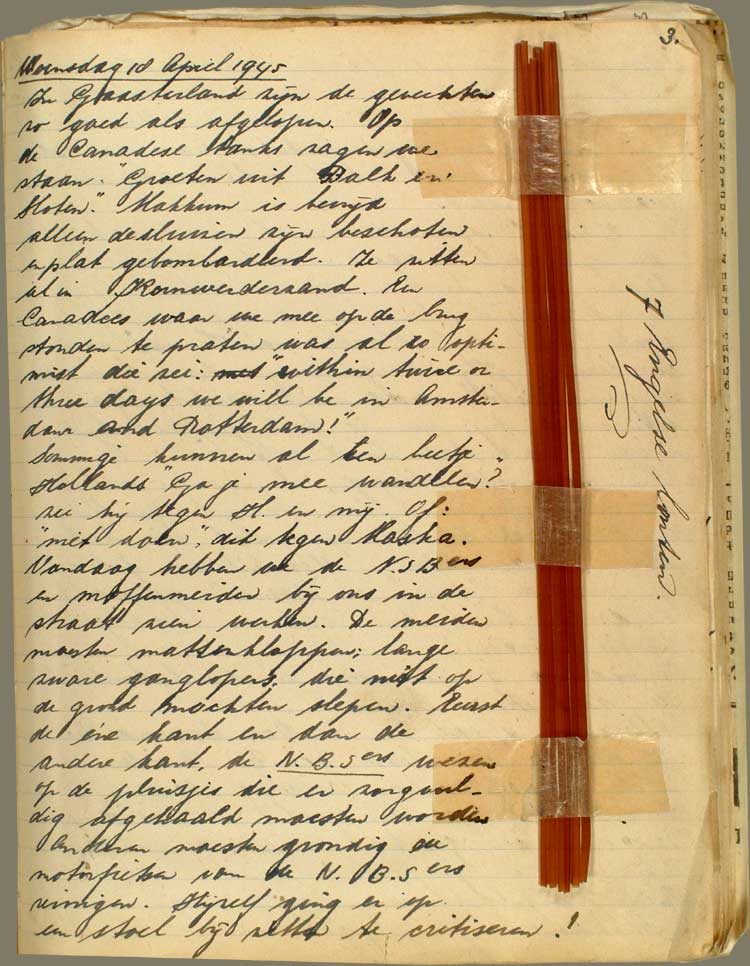 3.
Woensdag 18 April 1945
In Gaasterland zijn de gevechten
zo goed als afgelopen. Op
de Canadese tanks zagen we
staan "Groeten uit Balk en
Sloten." Makkum is bevrijd
alleen de sluizen zijn beschoten
en plat gebombardeerd. Ze zitten
al in Kornwerderzand. Een
Canadees waar we mee op de brug
stonden te praten was al zo opti-
mist die zei: "within twice or
three days we will be in Amster-
dam and Rotterdam!"
Sommige kunnen al een beetje
Hollands "Ga je mee wandelen?"
zei hij tegen H. en mij. Of:
"niet doen", dit tegen Maska.
Vandaag hebben we de N.S.Bers
en moffenmeiden bij ons in de
straat zien werken. De meiden
moesten mattenkloppen; lange
zware ganglopers, die niet op
de grond mochten slepen. Eerst
de ene kant en dan de
andere kant, de N.B.Sers wezen
op de pluisjes die er zorgvul-
dig afgehaald moesten worden
Anderen moesten grondig de
motorfietsen van de N.B.Sers
reinigen. Stijzelf ging er op
een stoel bij zitten te critiseren!
7 Engelse